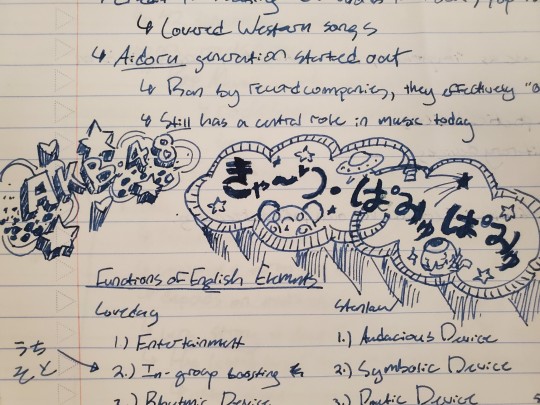 ↳ Covered Western songs
↳ Aidoru generation started out
↳ Ran by record companies, they effectively "o
↳ Still has a central role in music today
AKB48
きゃりー・ぱみゅぱみゅ
Functions of English Elements
Loveday
1.) Entertainment
2.) In-group boosting
3.) Rhythmic Device
Stanlaw
1.) Audacious Device
2.) Symbolic Device
3.) Poetic Device
うち
そと